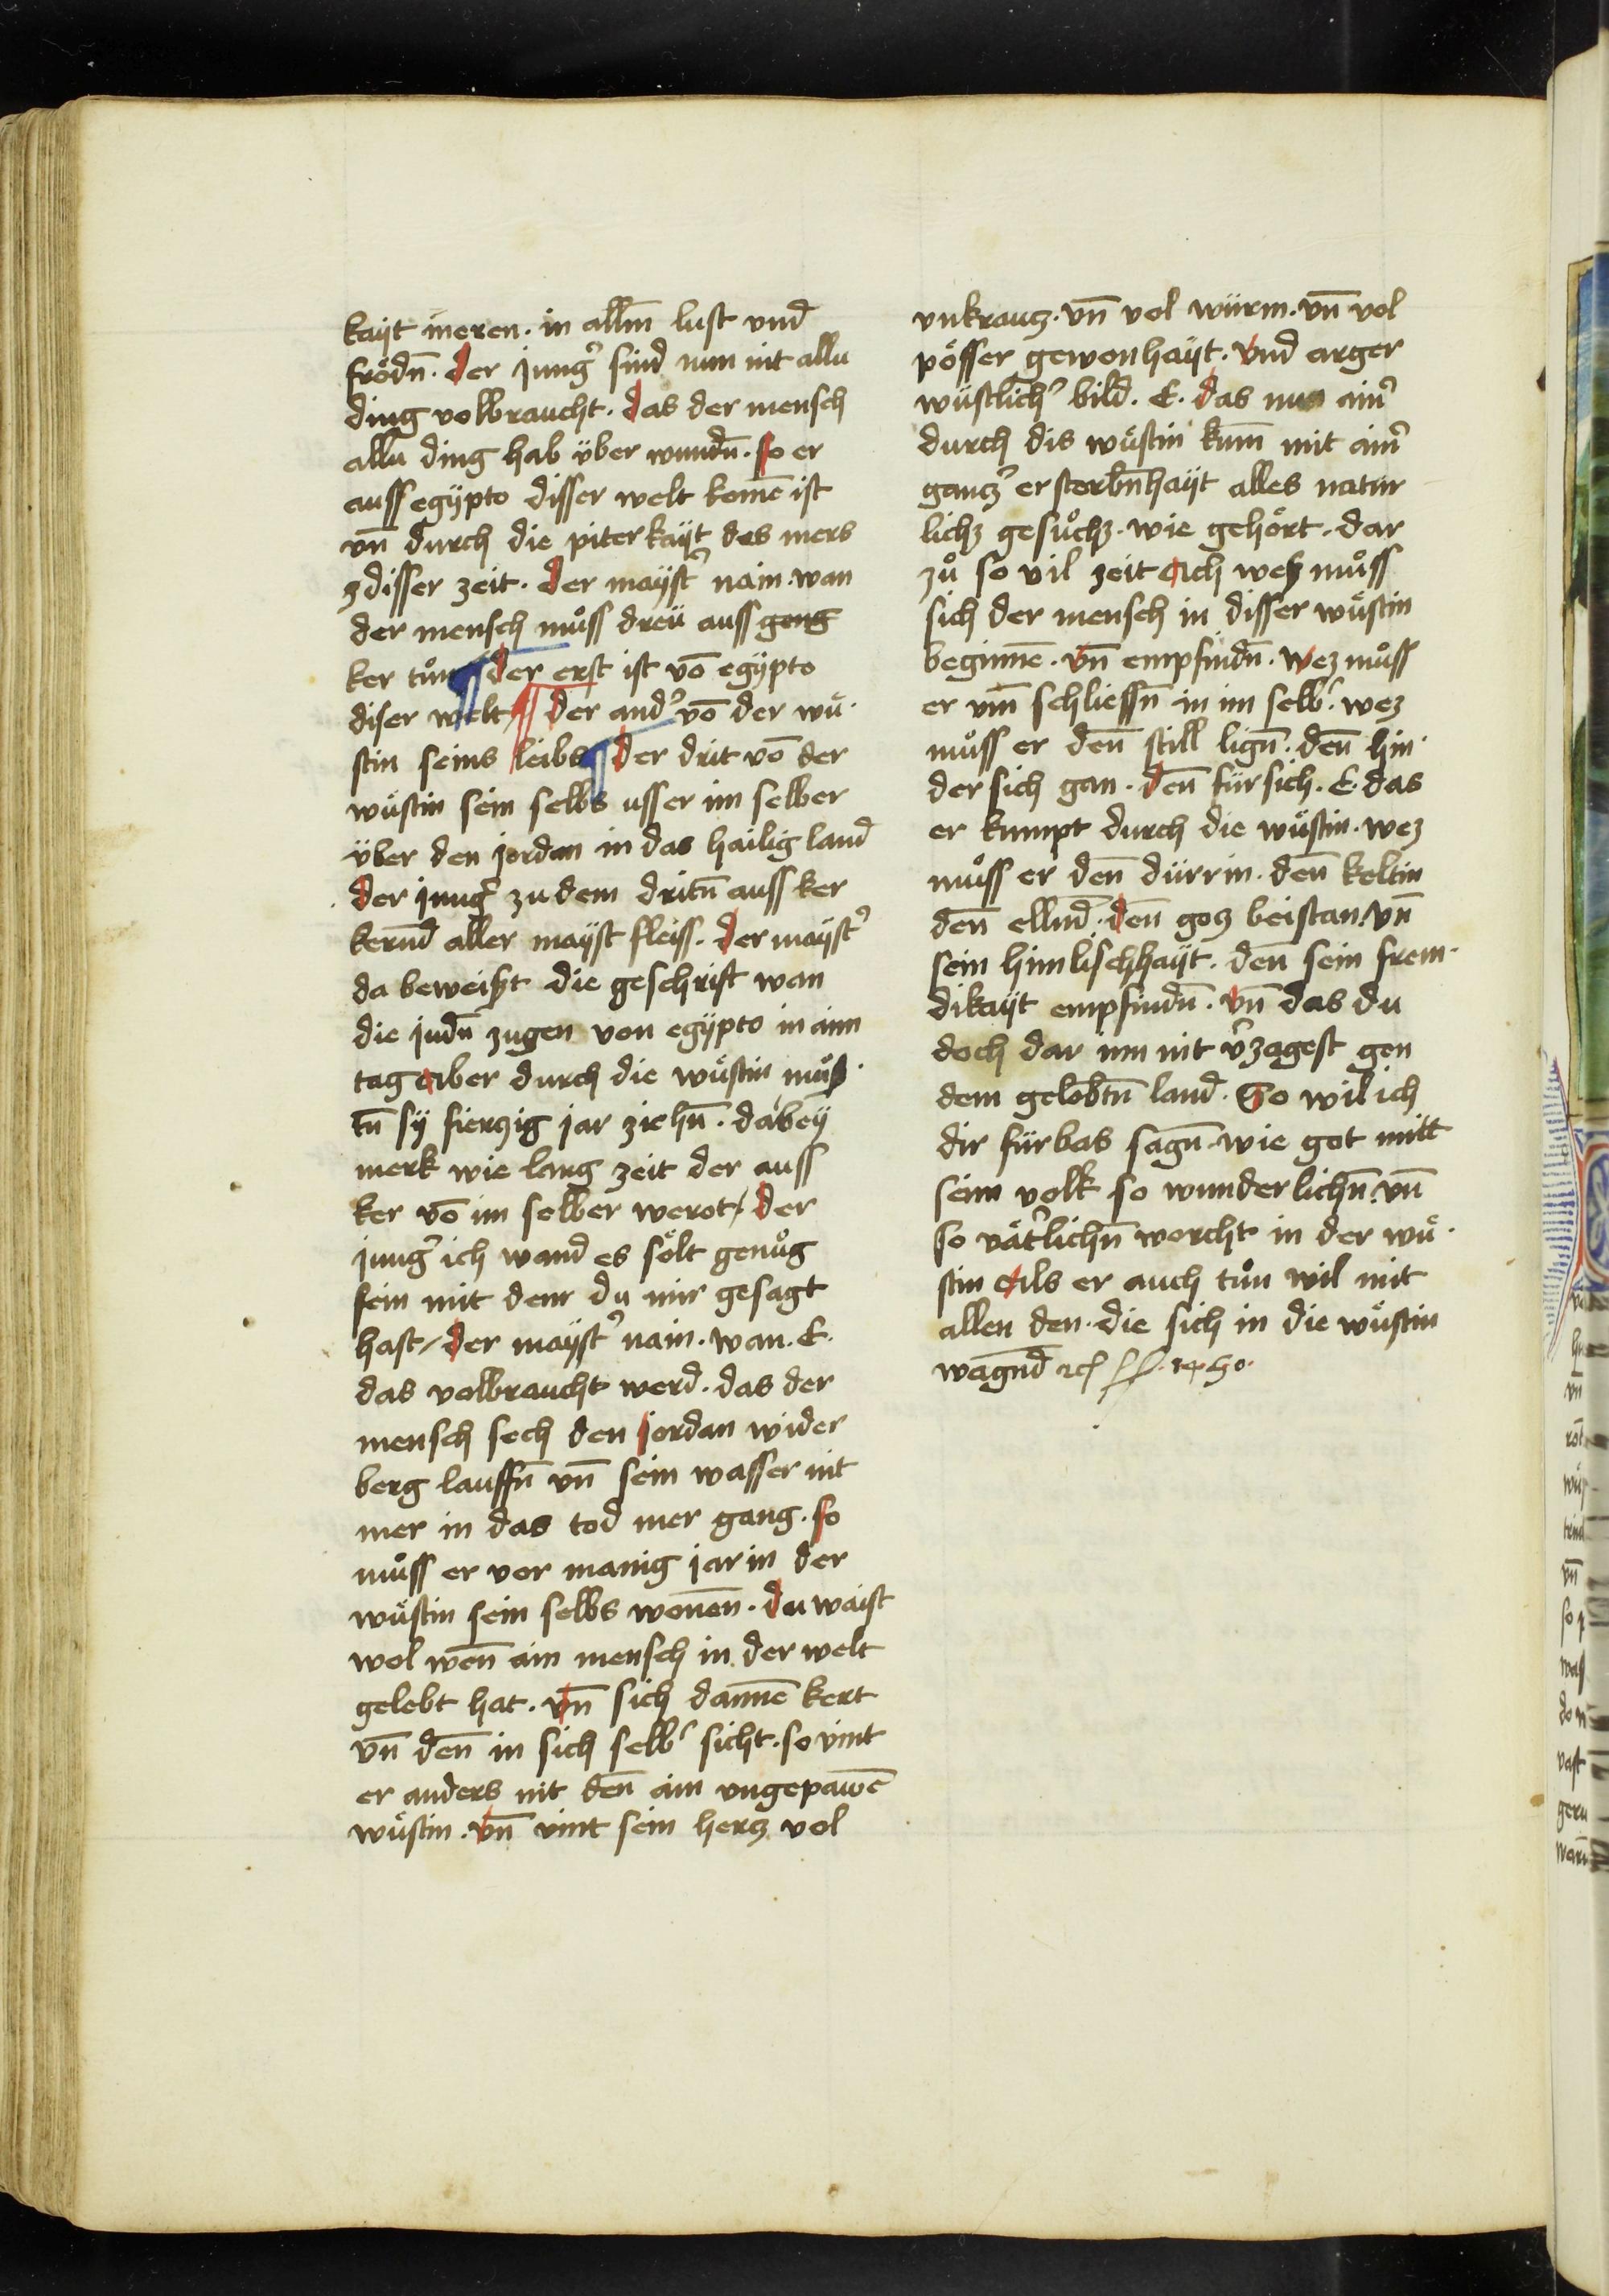 kaÿt meren · in alln̄ lust vnd
frödn̄ · der Jungͬ sind nun nit allu
ding volbraucht · das der mensch
allu ding hab v̈ber wundn̄ · so er
auss egÿpto disser welt komē ist
vn̄ durch die piterkaÿt des mers
disser zeit · der maÿstͬ nain · wan
der mensch můss dreü auss geng
ker tůn der erst ist vō egÿpto
diser welt der andͬ vō der wü
stin seins leibs der drit vō der
wüstin sein selbs usser im selber
v̈ber den jordan in das hailig land
der jungͬ zu dem dritn̄ auss ker
kernd aller maÿst fleiss · der maÿstͬ
da beweiszt die geschrift wan
die judn̄ zugen von egÿpto in aim
tag aber durch die wüstin můs
tn̄ sÿ fierzig jar ziehn̄ · dabeÿ
merk wie lang zeit der auss
ker vō im selber werot / der
jungͬ ich wand es sölt genůg
sein mit dem du mir gesagt
hast / der maÿstͬ nain · wan · E ·
das volbraucht werd · das der
mensch sech den jordan wider
berg lauffn̄ vn̄ sein wasser nit
mer in das tod mer gang · so
můss er vor manig jar in der
wüstin sein selbs wonen · du waist
wol wen̄ ain mensch in der welt
gelebt hat · vn̄ sich dannē kert
vn̄ den̄ in sich selbͬ sicht · so vint
er anders nit den̄ ain vngepawē
wüstin · vn̄ vint sein herz vol
vnkrautz · vn̄ vol würm · vn̄ vol
pösser gewonhaÿt · vnd arger
wüstlichͬ bild · E · das nun ainͬ
durch dis wüstin kum̄ mit ainͬ
gantzͬ erstorbn̄haÿt alles natur
lichz gesůchz · wie gehört · dar
zů so vil zeit Ach wesz můss
sich der mensch in disser wüstin
beginnē · vn̄ empfindn̄ · wez můss
er vm̄ schliessn̄ in im selbͬ · wez
můss er den̄ still lign̄ · den̄ hin
dersich gan · den̄ fürsich · E · das
er kumpt durch die wüstin · wez
můss er den̄ dürrin · den̄ keltin
den̄ ellnd · den̄ gotz beistan · vn̄
sein himlischhaÿt · den̄ sein frem
dikaÿt empfindn̄ · vn̄ das du
doch dar um nit vͬzagest gen
dem gelobtn̄ land · So wil ich
dir fürbas sagn̄ · wie got mitt
seim volk so wunderlichn̄ vn̄
so vätͬlichn̄ worcht in der wü
stin Als er auch tůn wil mit
allen den · die sich in die wüstin
wagnd